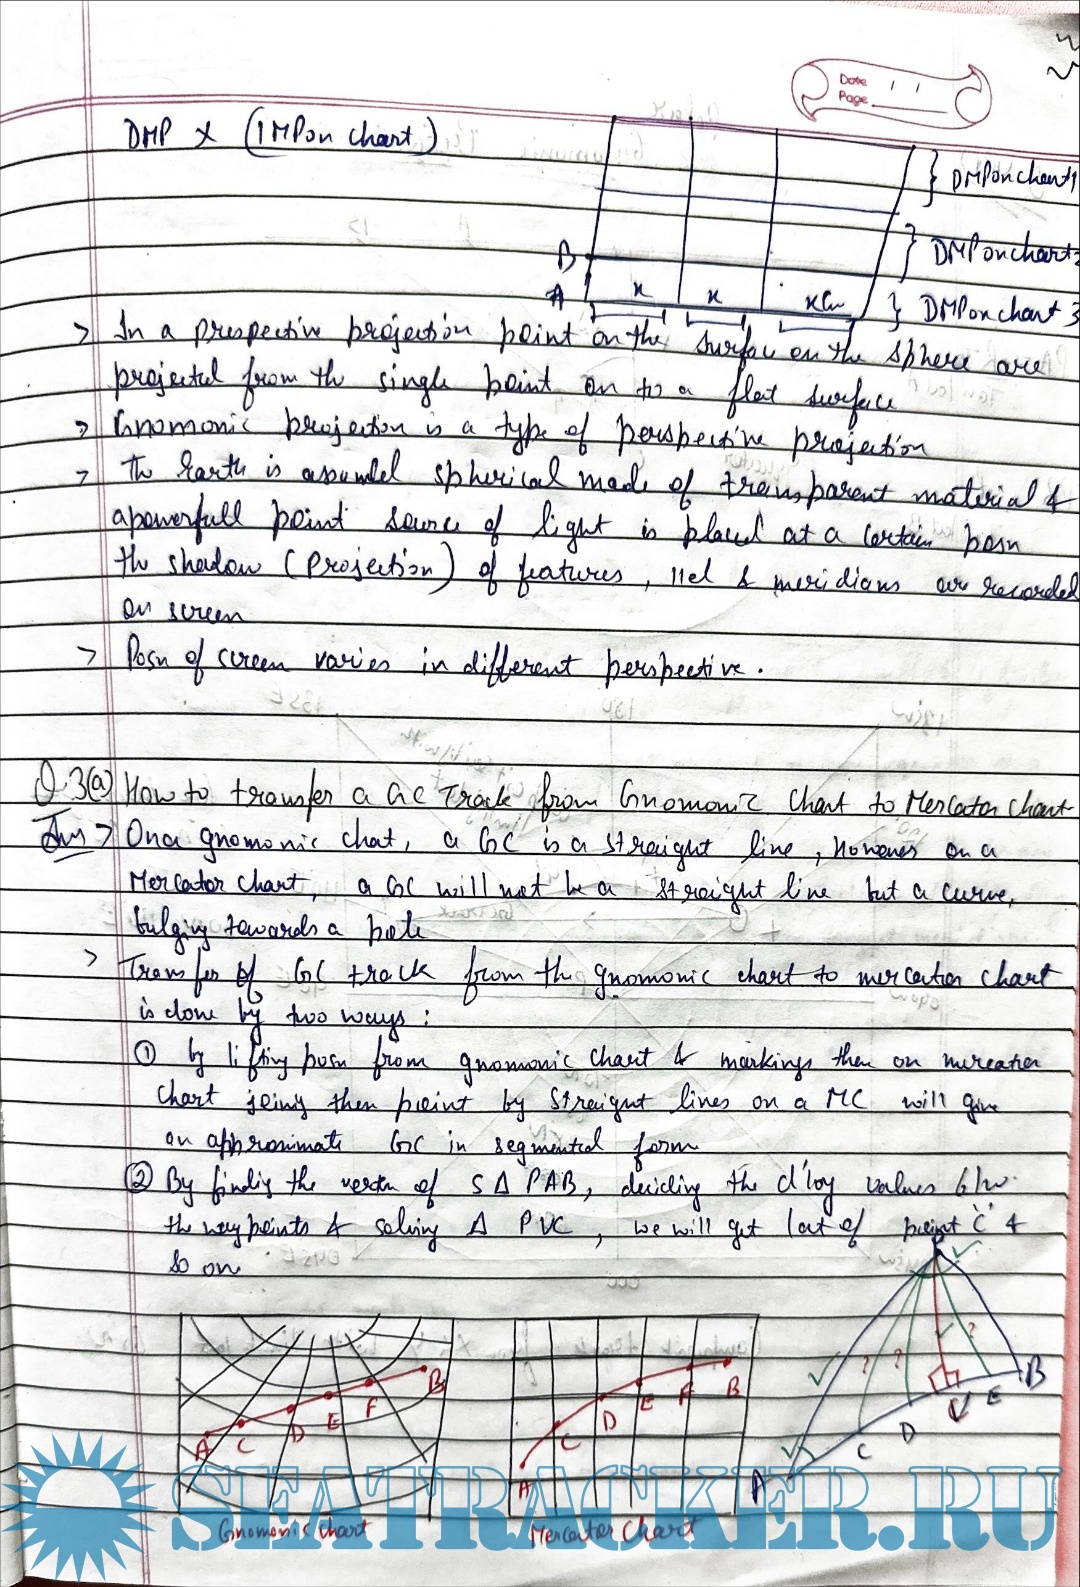 Date / /
Page
DMP x (1MP on chart)
} DMP on chart 1
} DMP on chart 2
B
A
x x x cm
} DMP on chart 3
> In a prespective projection point on the surface on the sphere are
projected from the single point on to a flat surface
> Gnomonic projection is a type of perspective projection
> The Earth is assumed spherical made of transparent material &
a powerfull point source of light is placed at a certain posn
the shadow (projection) of features, llel & meridians are recorded
on screen
> Posn of screen varies in different perspective.
Q.3(a) How to transfer a GC Track from Gnomonic chart to Mercator chart
Ans > On a gnomonic chat, a GC is a straight line, however on a
Mercator chart, a GC will not be a straight line but a curve,
bulging towards a pole
> Transfer of GC track from the gnomonic chart to mercator chart
is done by two ways :
① by lifting posn from gnomonic chart & markings then on mercator
chart joing then point by straight lines on a MC will give
an approximate GC in segmental form
② By findig the vertex of S Δ PAB, deciding the d'log values b/w
the waypoints & solving Δ PVC, we will get lat of point 'C' &
so on
P
A C D E F B
A C D E F B
? ? ?
A C D V E B
Gnomonic chart
Mercator chart
SEATRACKER.RU